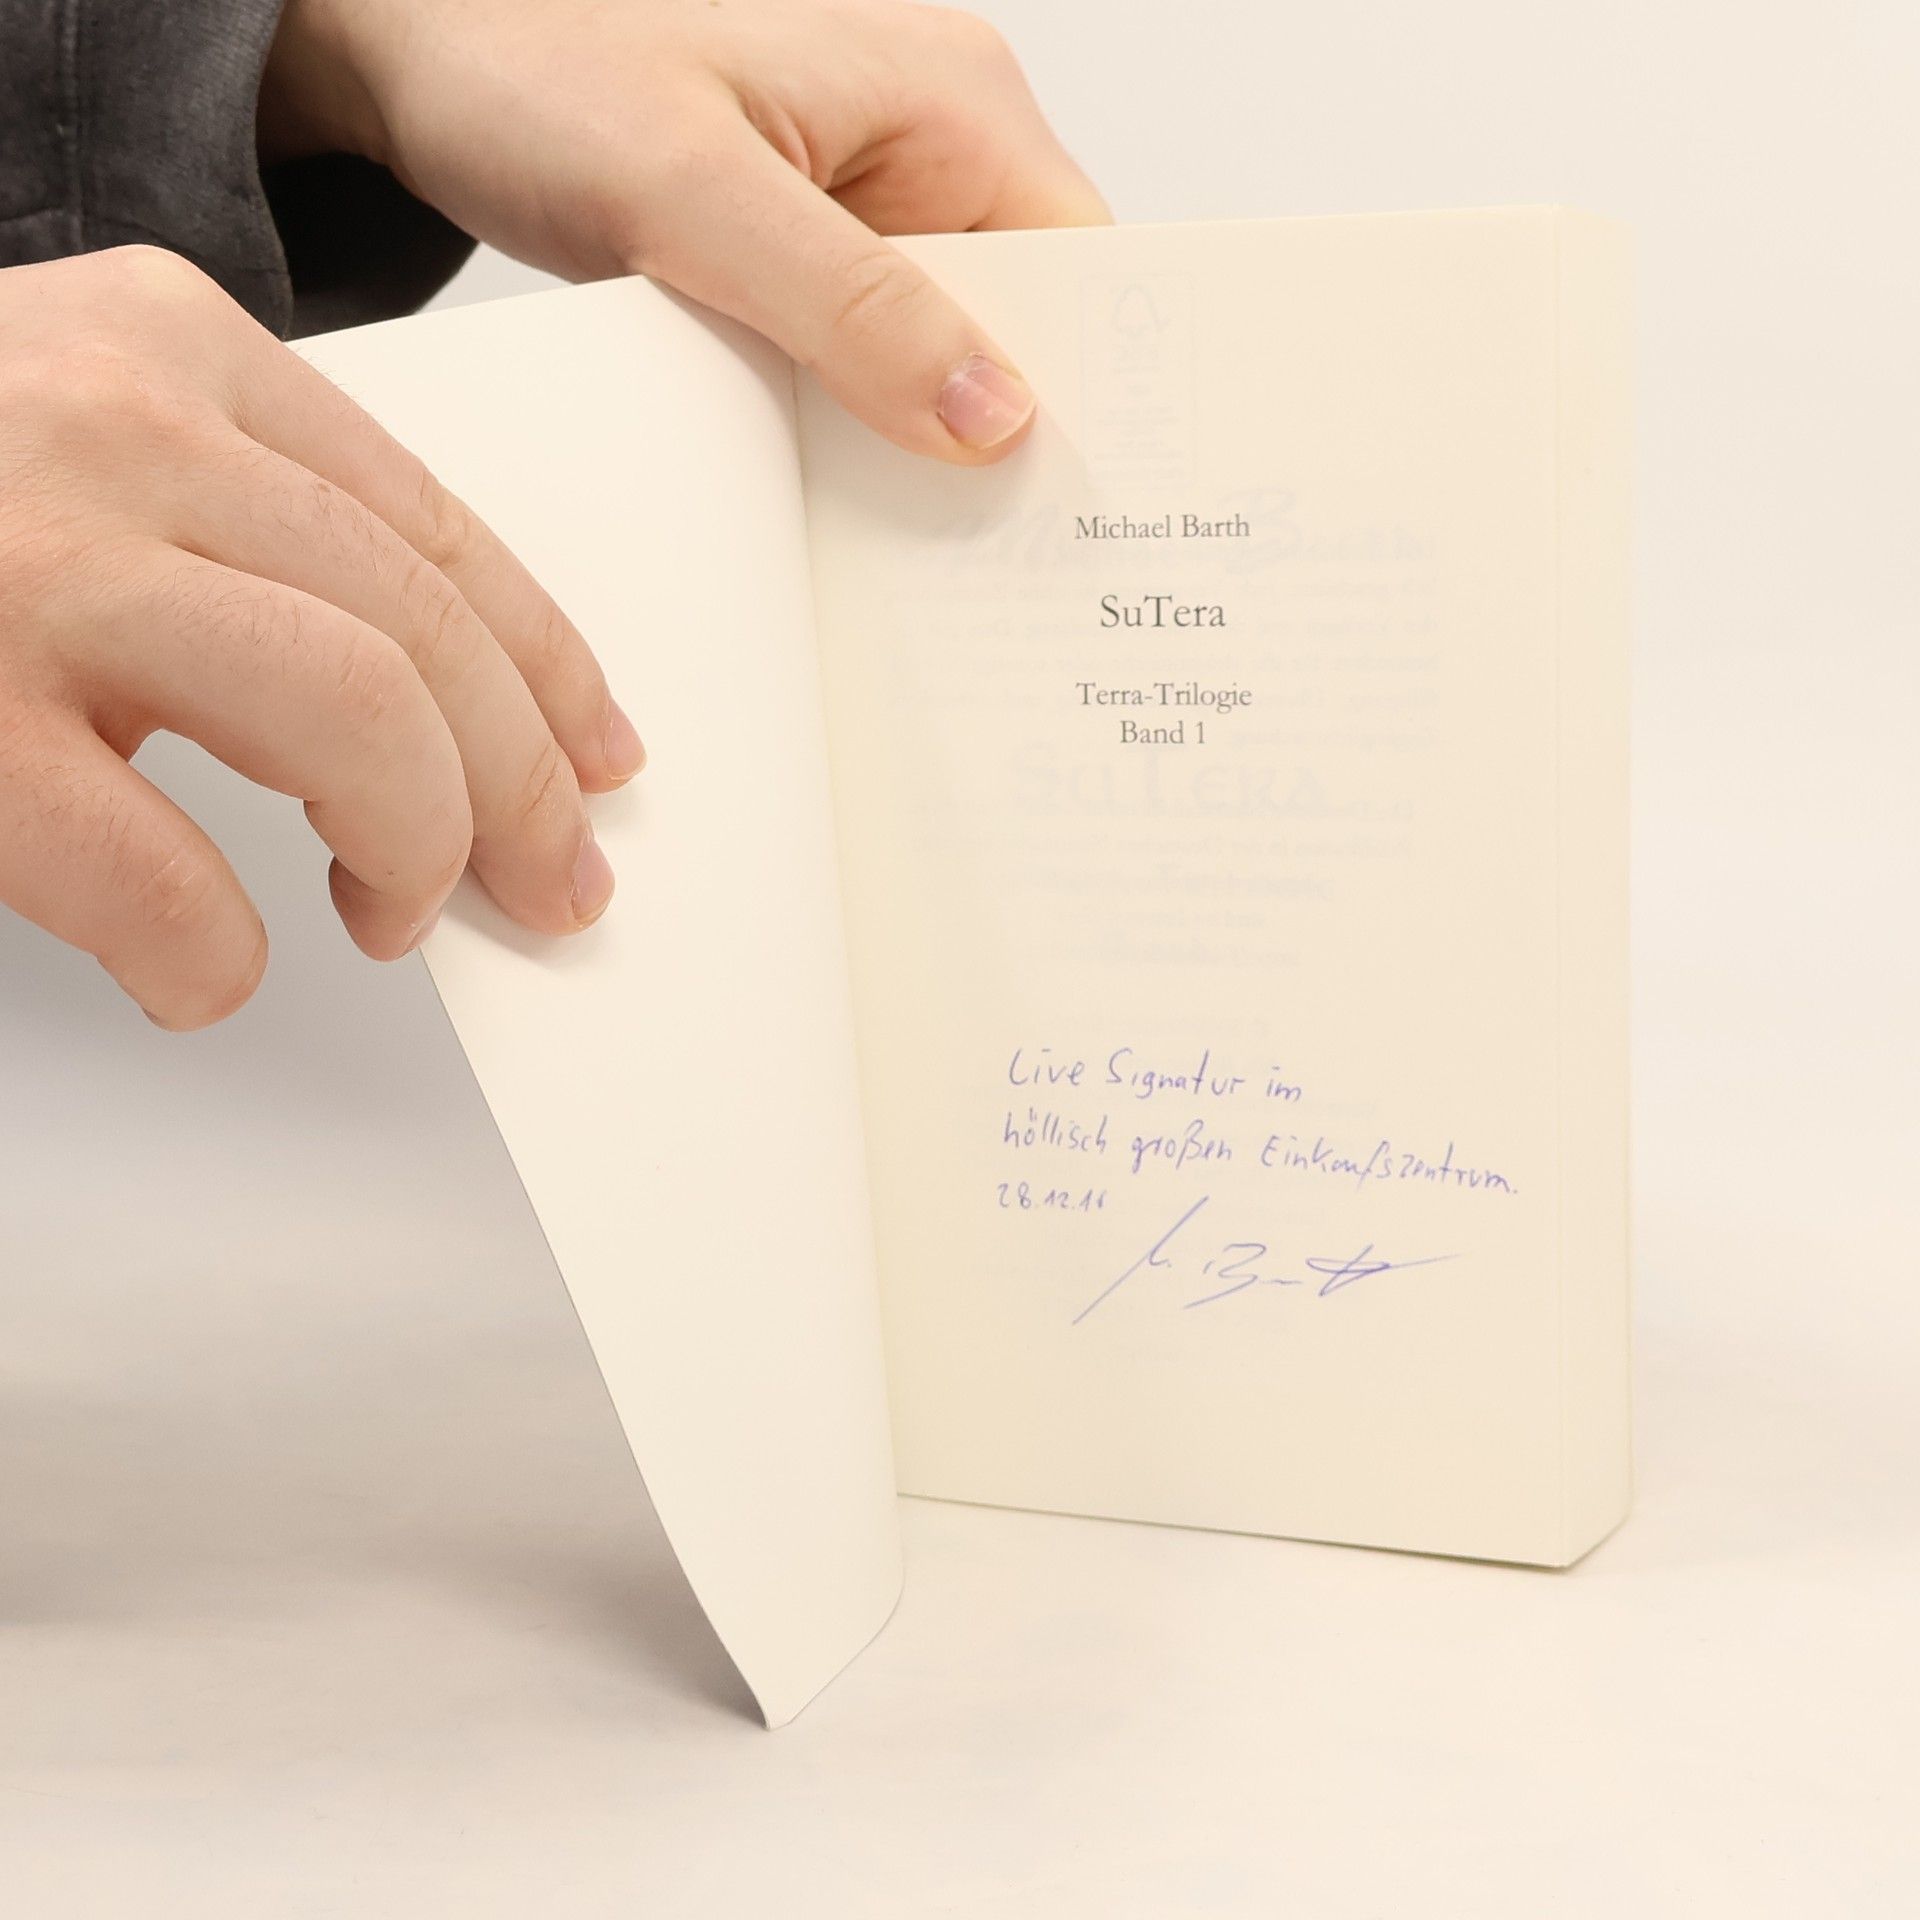 Michael Barth
SuTera
Terra-Trilogie
Band 1
Live Signatur im
höllisch großen Einkaufszentrum.
28.12.16
M. Barth